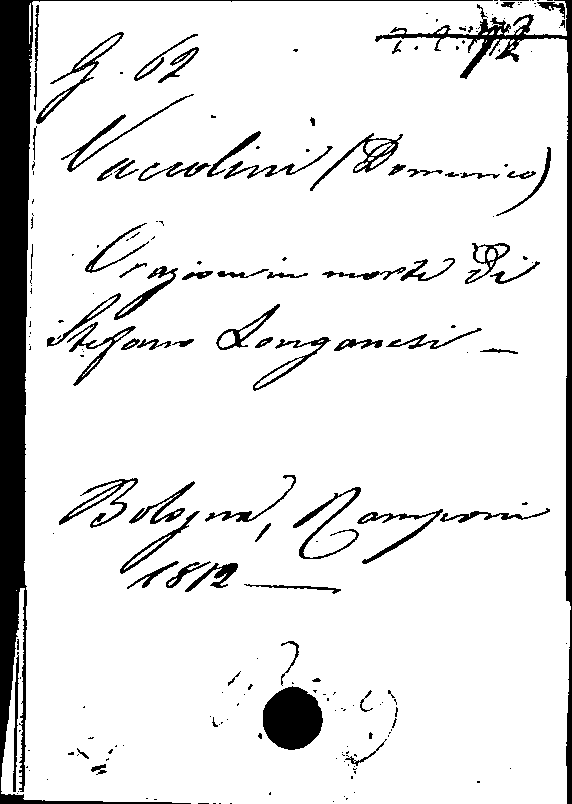 G. 62
Vaccolini (Domenico)
Orazione in morte di
Stefano Longanesi —
Bologna, Ramponi
1812 —